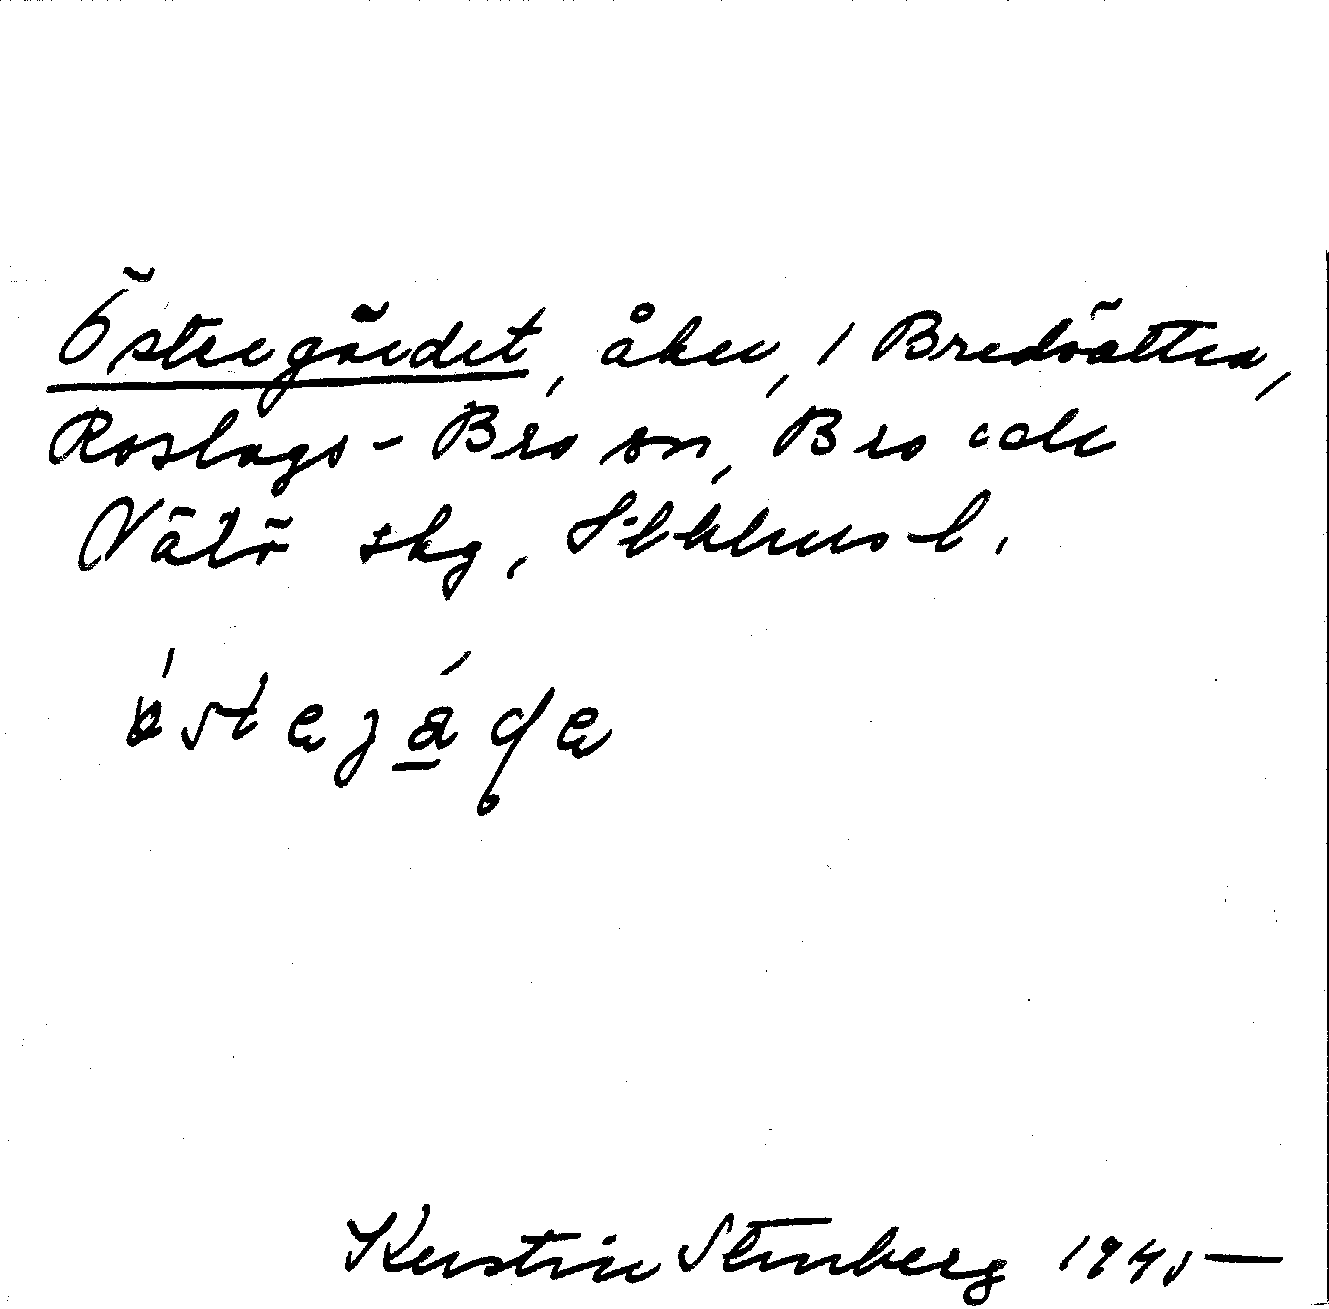 Östergärdet, åker, 1 Bredsättra,
Roslags-Bro sn, Bro och
Vätö skg, Sthlms l.
östegärde
Kerstin Stenberg 1945